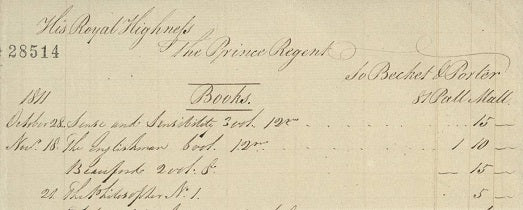 His Royal Highness
28514
The Prince Regent
To Becket & Porter
1811 Books. 81 Pall Mall.
October 28. Sense and Sensibility 3 vol. 12s .. 15 —
Novr. 18. The Englishman 6 vol. 12s .. 1 10 —
Beauford 2 vol. 8 — 15 —
21. The Philosopher No. 1. .. 5 —